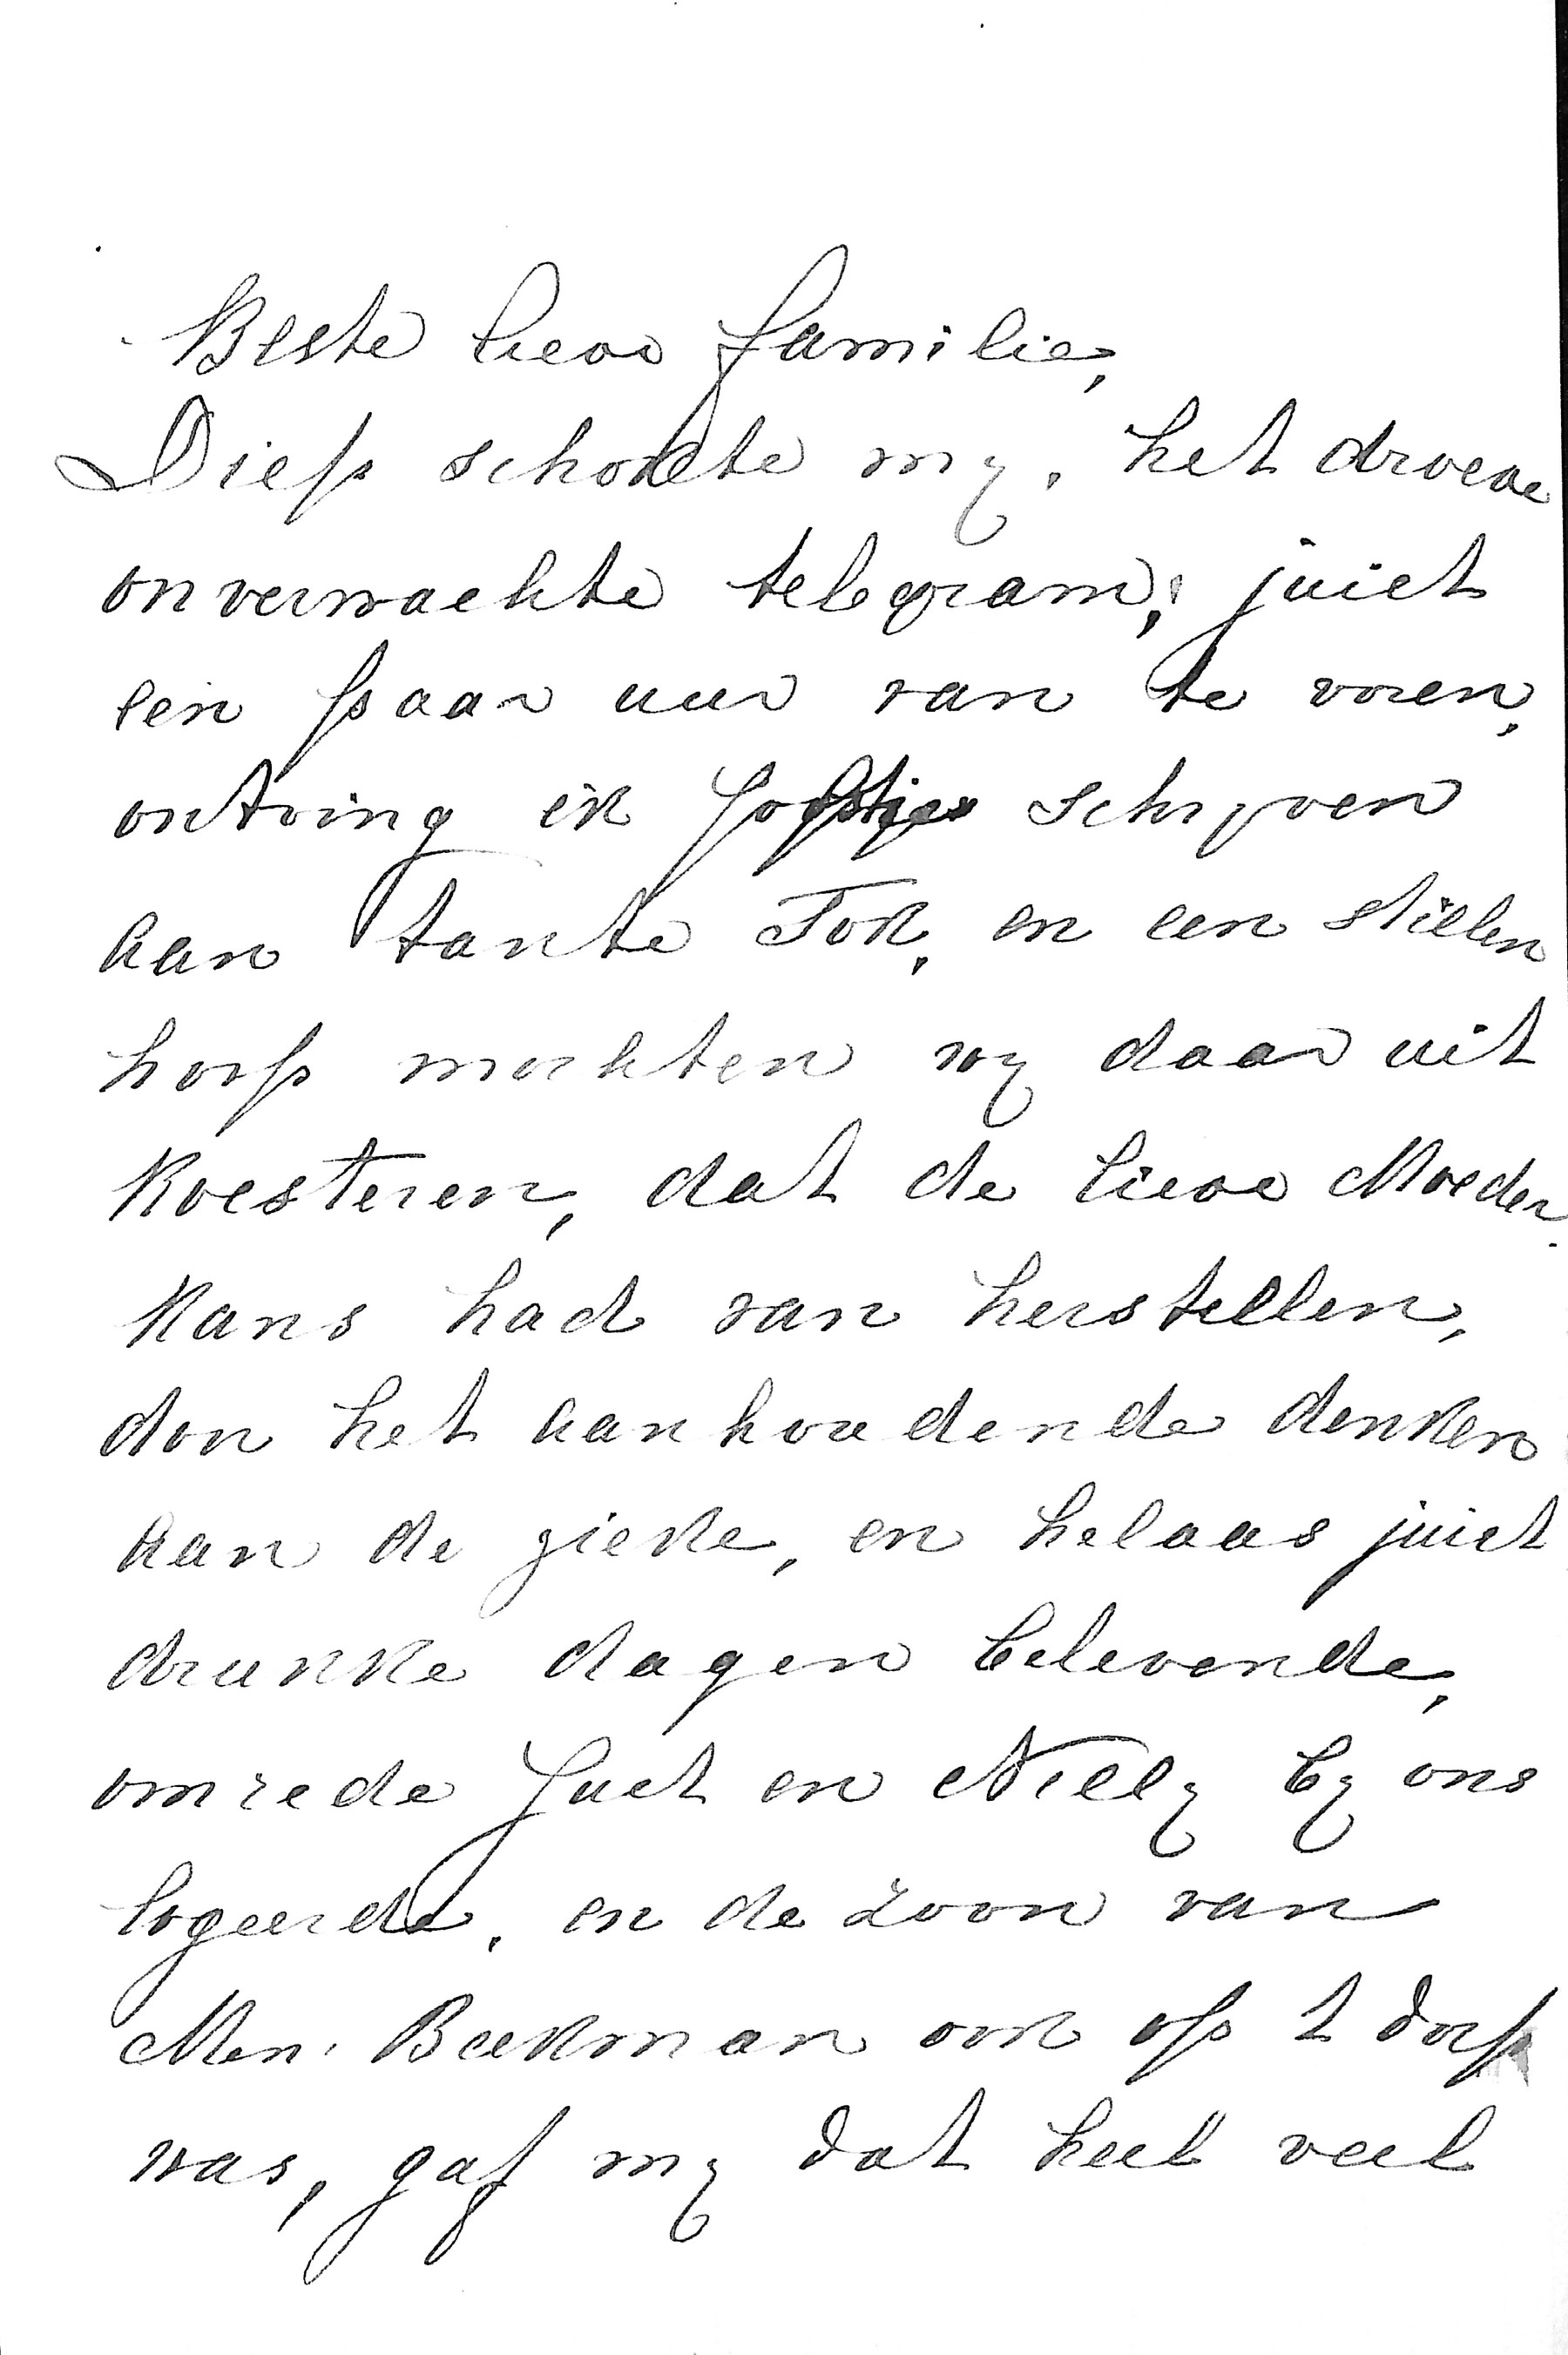 Beste lieve familie,
Diep schokte my, het droeve
onverwachte telegram, juist
een paar uur van te voren,
ontving ik Jopstjes schryven
aan tante Tok, en een stillen
hoop mochten wy daar uit
koesteren, dat de lieve Moeder
kans had van herstellen,
don het aanhoudende denken
aan de zieke, en helaas juist
drukke dagen belevende,
omrede Juet en Nelly by ons
logeerde, en de zoon van
Men. Beekman ook op t dorp
was, gaf my dat heel veel